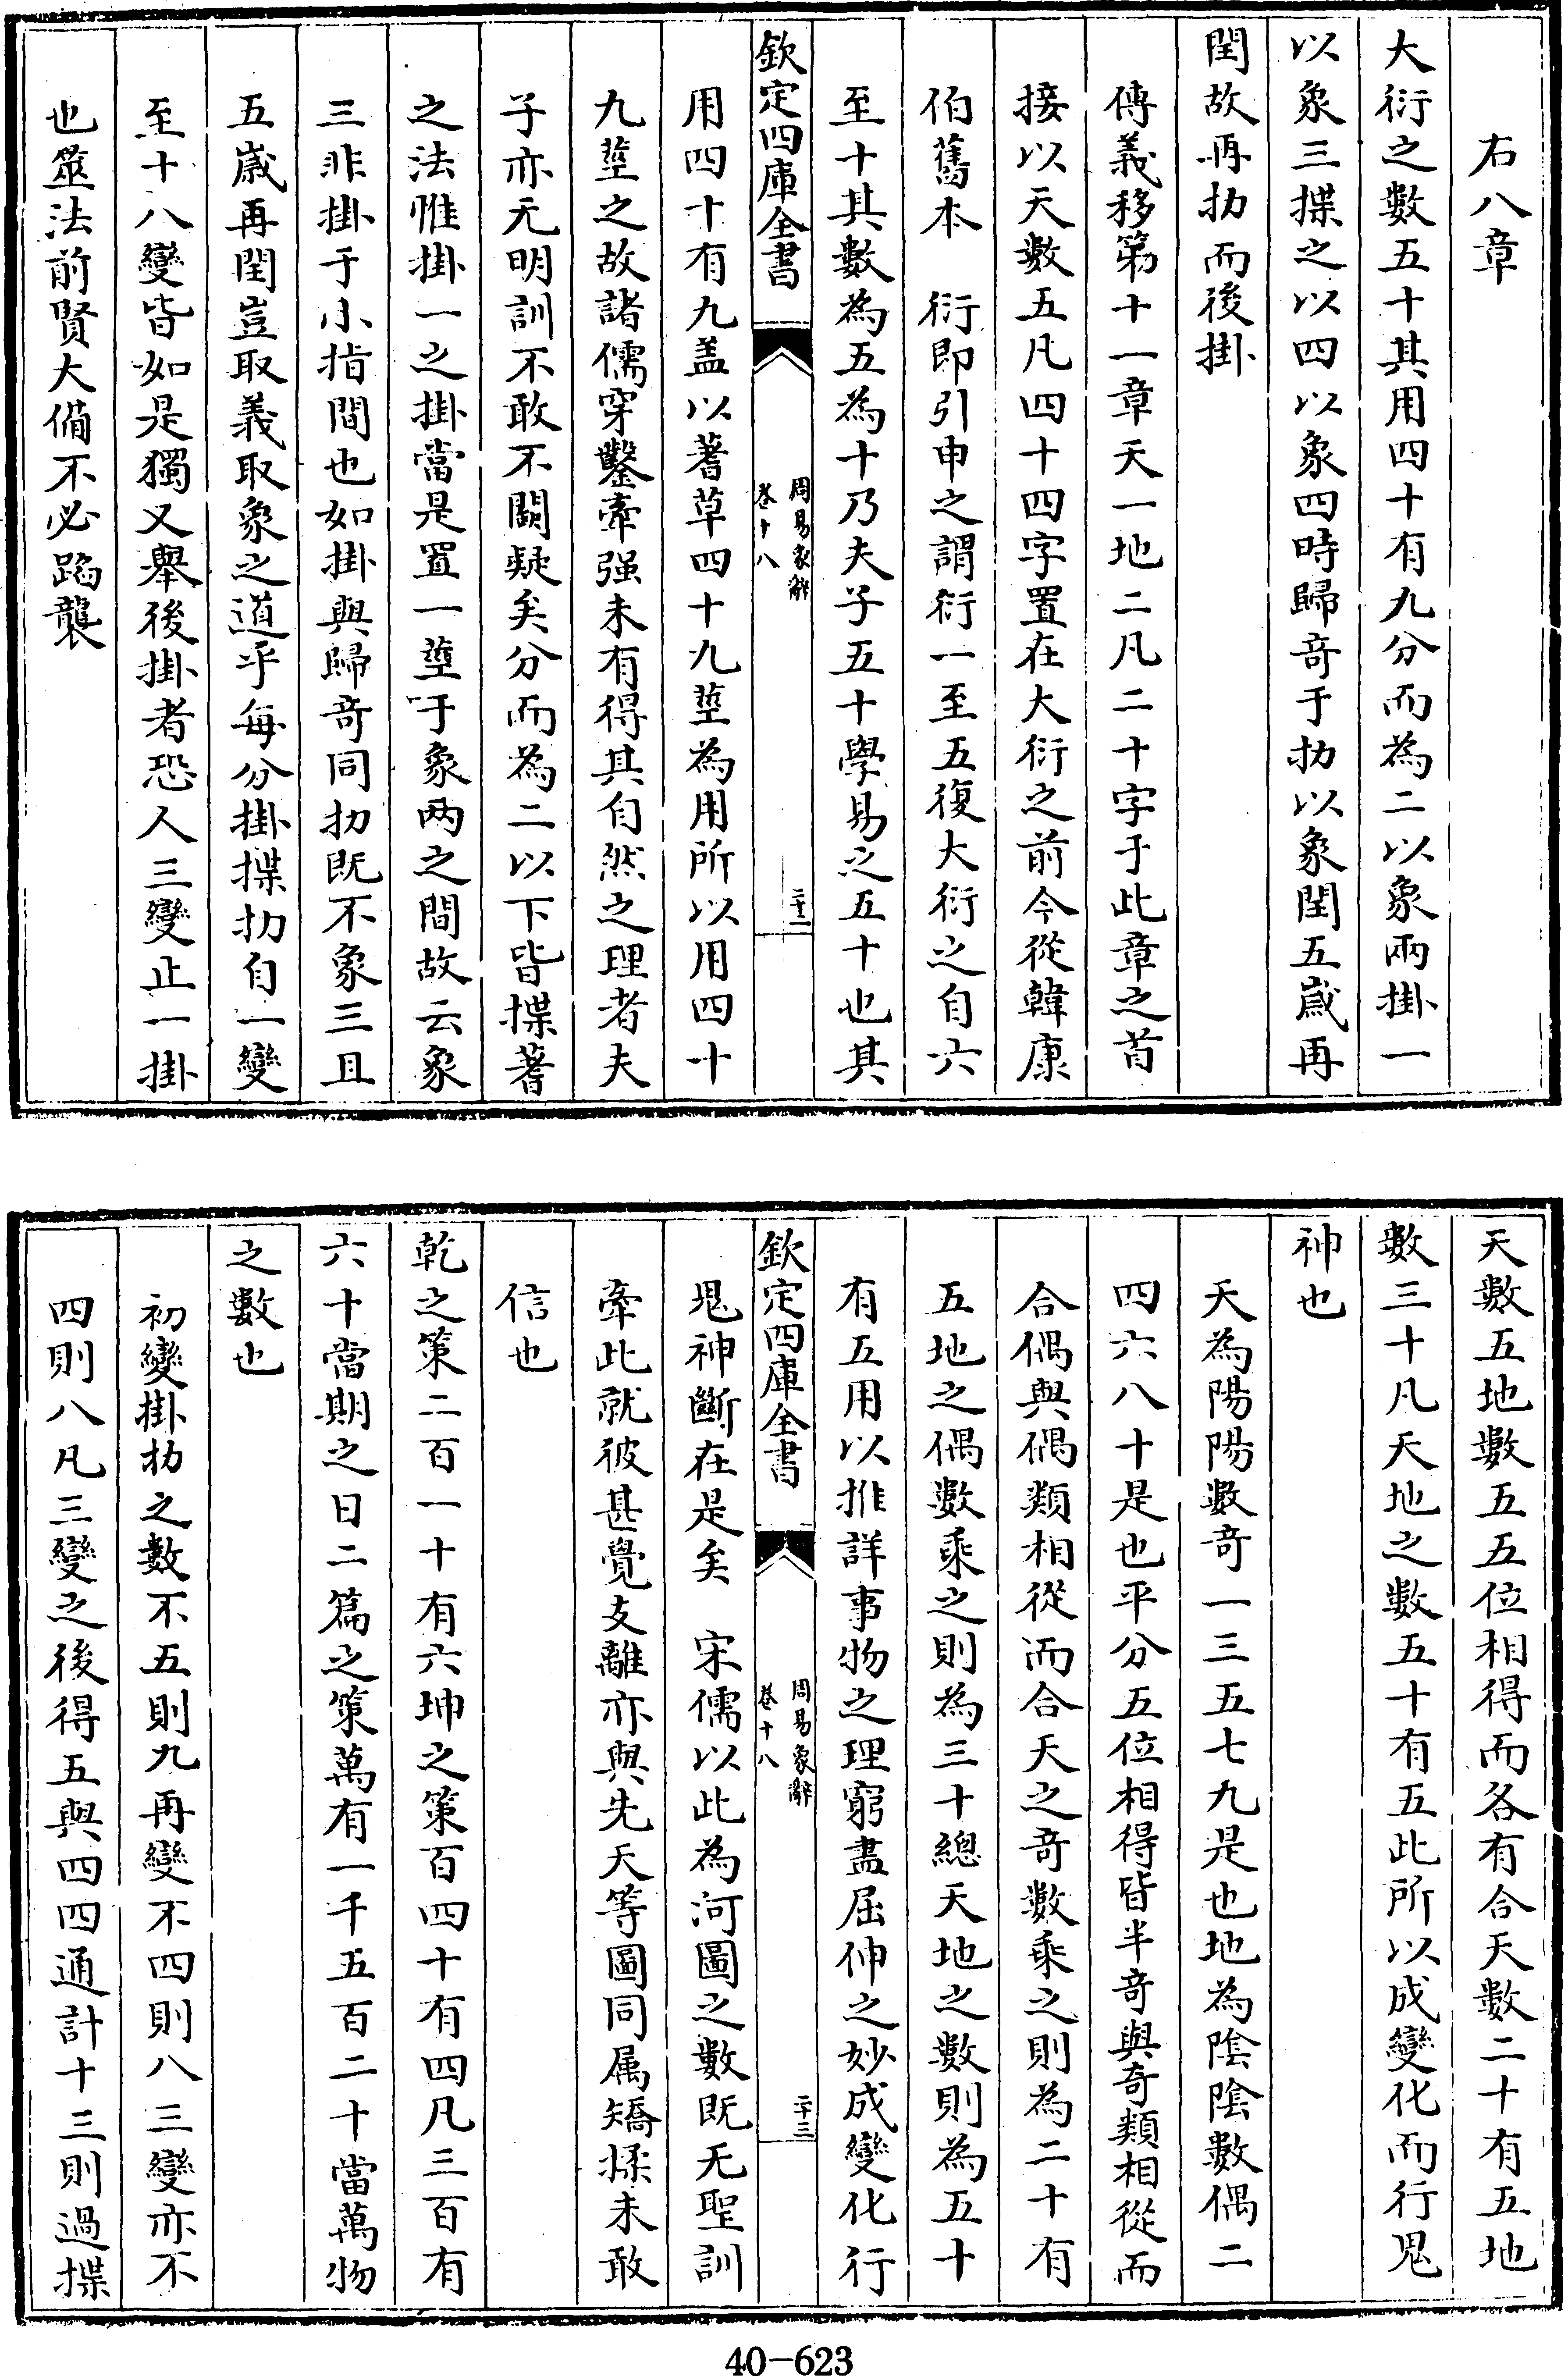 右八章
大衍之數五十其用四十有九分而為二以象兩掛一
以象三揲之以四以象四時歸奇于扐以象閏五歲再
閏故再扐而後掛
傳義移第十一章天一地二凡二十字于此章之首
接以天數五凡四十四字置在大衍之前今從韓康
伯舊本　衍即引申之謂衍一至五復大衍之自六
至十其數為五為十乃夫子五十學易之五十也其
欽定四庫全書
周易象辭
卷十八
二十二
用四十有九盖以蓍草四十九莖為用所以用四十
九莖之故諸儒穿鑿牽强未有得其自然之理者夫
子亦无明訓不敢不闕疑矣分而為二以下皆揲蓍
之法惟掛一之掛當是置一莖于象兩之間故云象
三非掛于小指間也如掛與歸奇同扐既不象三且
五歲再閏豈取義取象之道乎每分掛揲扐自一變
至十八變皆如是獨又舉後掛者恐人三變止一掛
也筮法前賢大備不必蹈襲
天數五地數五五位相得而各有合天數二十有五地
數三十凡天地之數五十有五此所以成變化而行鬼
神也
天為陽陽數奇一三五七九是也地為陰陰數偶二
四六八十是也平分五位相得皆半奇與奇類相從而
合偶與偶類相從而合天之奇數乘之則為二十有
五地之偶數乘之則為三十總天地之數則為五十
有五用以推詳事物之理窮盡屈伸之妙成變化行
欽定四庫全書
周易象辭
卷十八
二十三
鬼神斷在是矣　宋儒以此為河圖之數既无聖訓
牽此就彼甚覺支離亦與先天等圖同属矯揉未敢
信也
乾之策二百一十有六坤之策百四十有四凡三百有
六十當期之日二篇之策萬有一千五百二十當萬物
之數也
初變掛扐之數不五則九再變不四則八三變亦不
四則八凡三變之後得五與四四通計十三則過揲
40-623